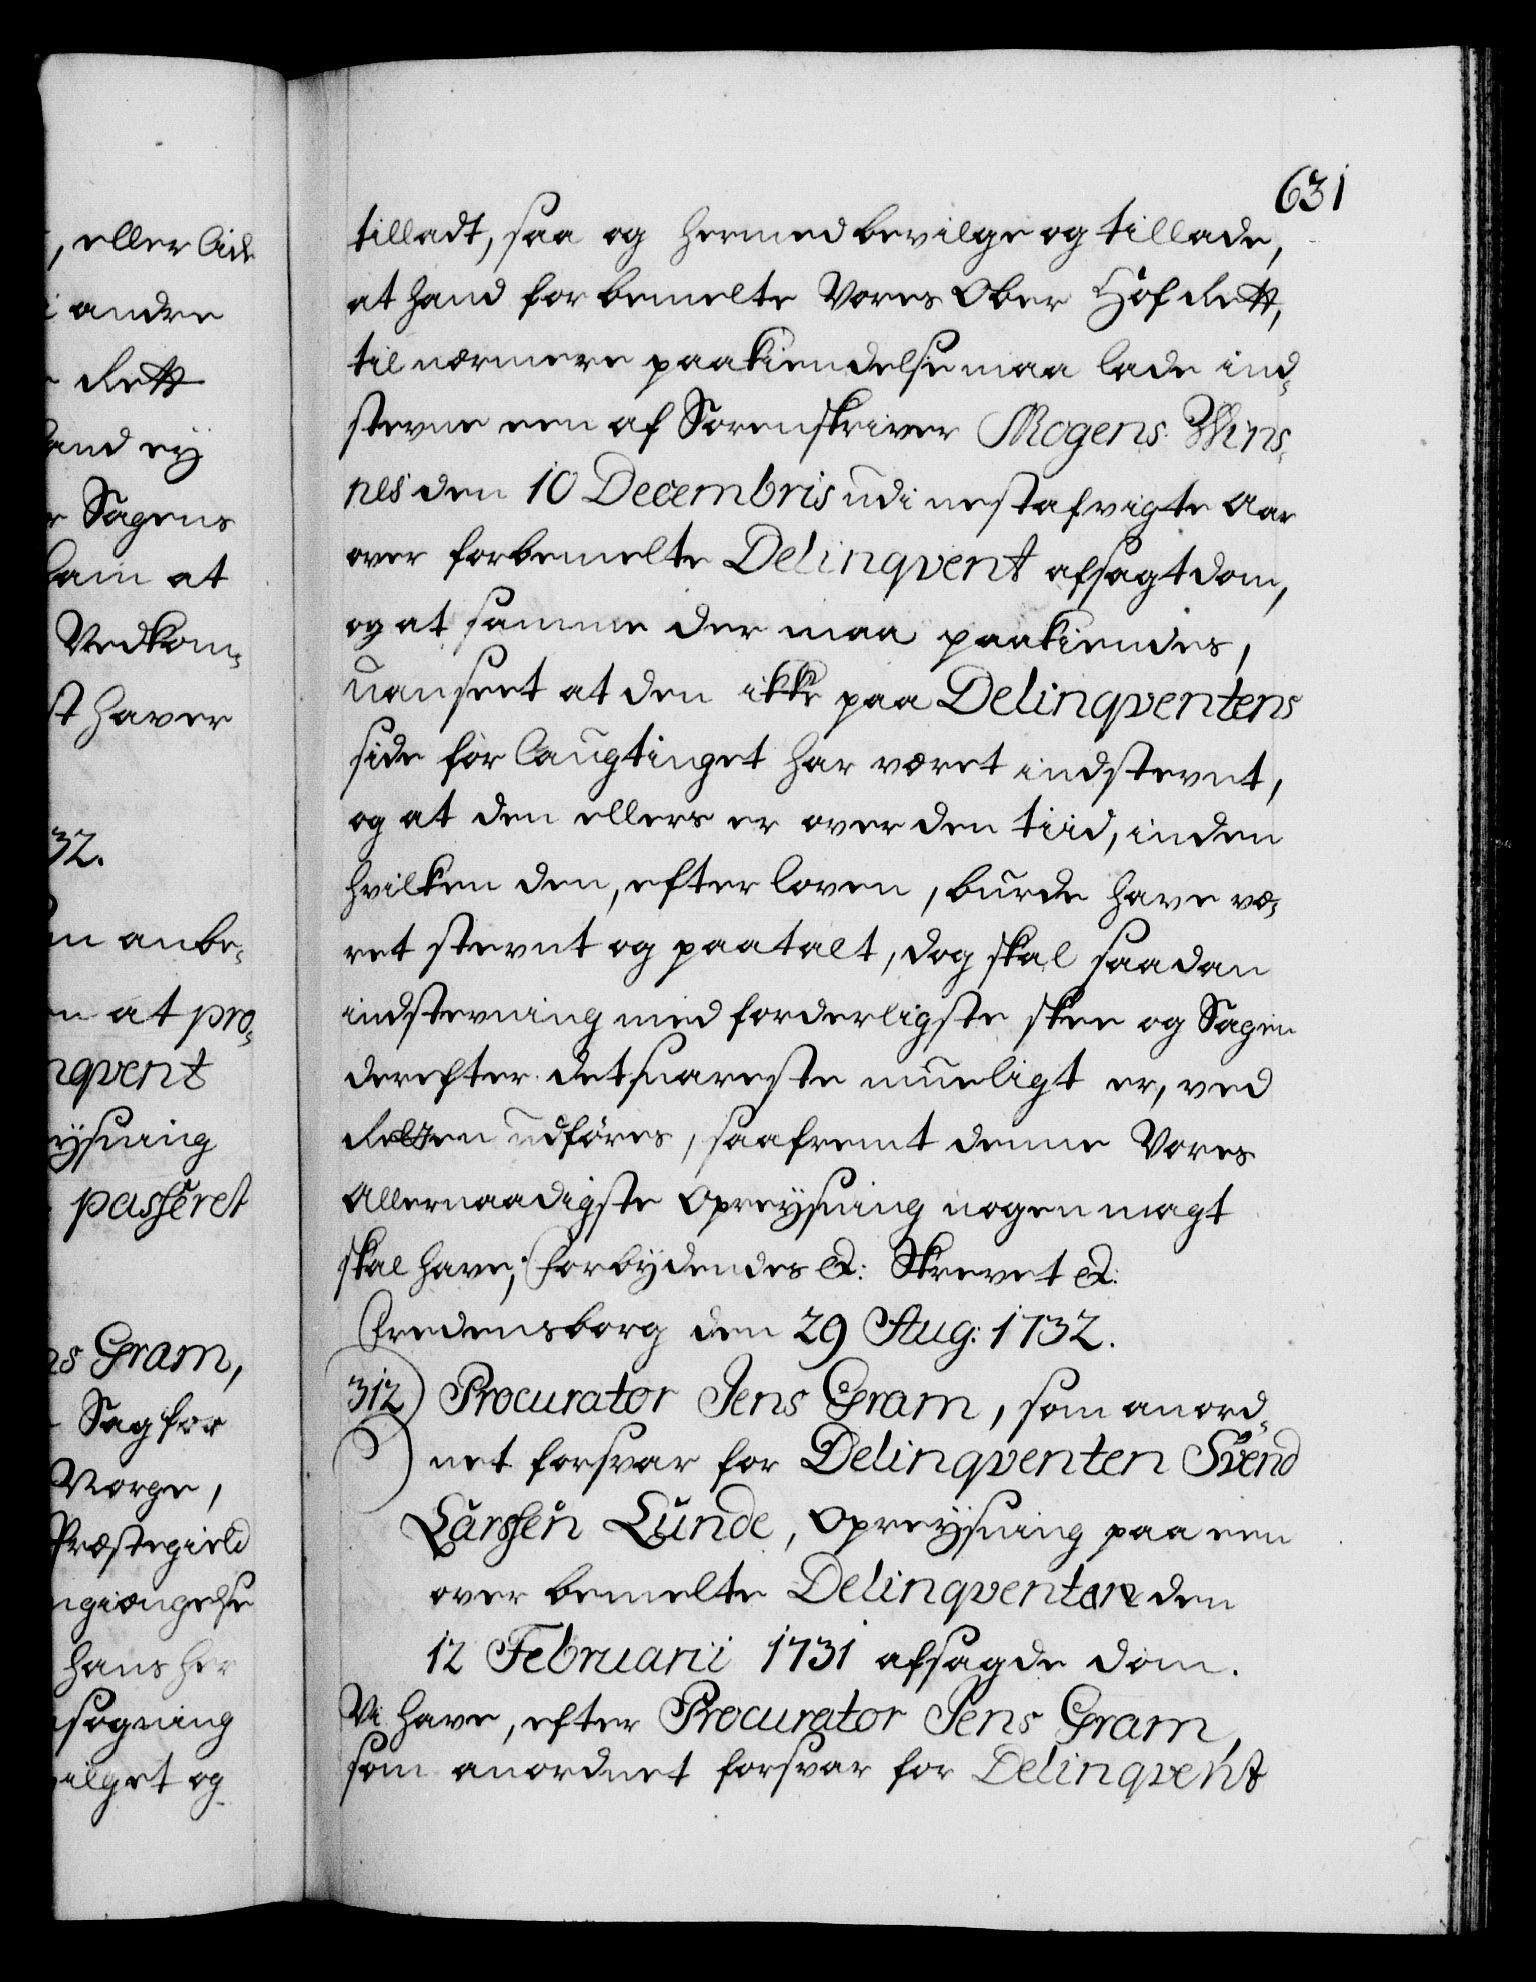 631
tilladt, saa og hermed bevilge og tillade,
at hand for bemelte Vores Ober Hof Rett,
til nærmere paakiendelse maa lade ind-
stevne een af Sorenskriver Mogens Wins-
nes den 10 Decembris udi nestafvigte Aar
over forbemelte Delinqvent afsagt dom,
og at samme der maa paakiendes,
uanseet at den ikke paa Delinqventens
side for laugtinget har været indstevnt,
og at den ellers er over den tiid, inden
hvilken den, efter loven, burde have væ-
ret stevnt og paatalt, dog skal saadan
indstevning med forderligste skee og Sagen
derefter det snareste mueligt er, ved
Retten udføres, saafremt denne Vores
Allernaadigste Opreysning nogen magt
skal have; Forbydendes &: Skrevet &:
Fredensborg den 29 Aug: 1732.
312) Procurator Jens Gram, som anord-
net forsvar for Delinqventen Svend
Larssen Lunde, Opreysning paa een
over bemelte Delinqventen den
12 Februarii 1731 afsagde dom.
Vi have, efter Procurator Jens Gram,
som anordnet forsvar for Delinqvent
, eller lide
i andre
Rett
hand ey
Sagens
ham at
Vedkom-
haver
32.
anbe-
at pro-
nqvent
eysning
passeret
ns Gram,
Sag for
Norge,
Præstegield
ngiængelse
hans her
søgning
vilget og